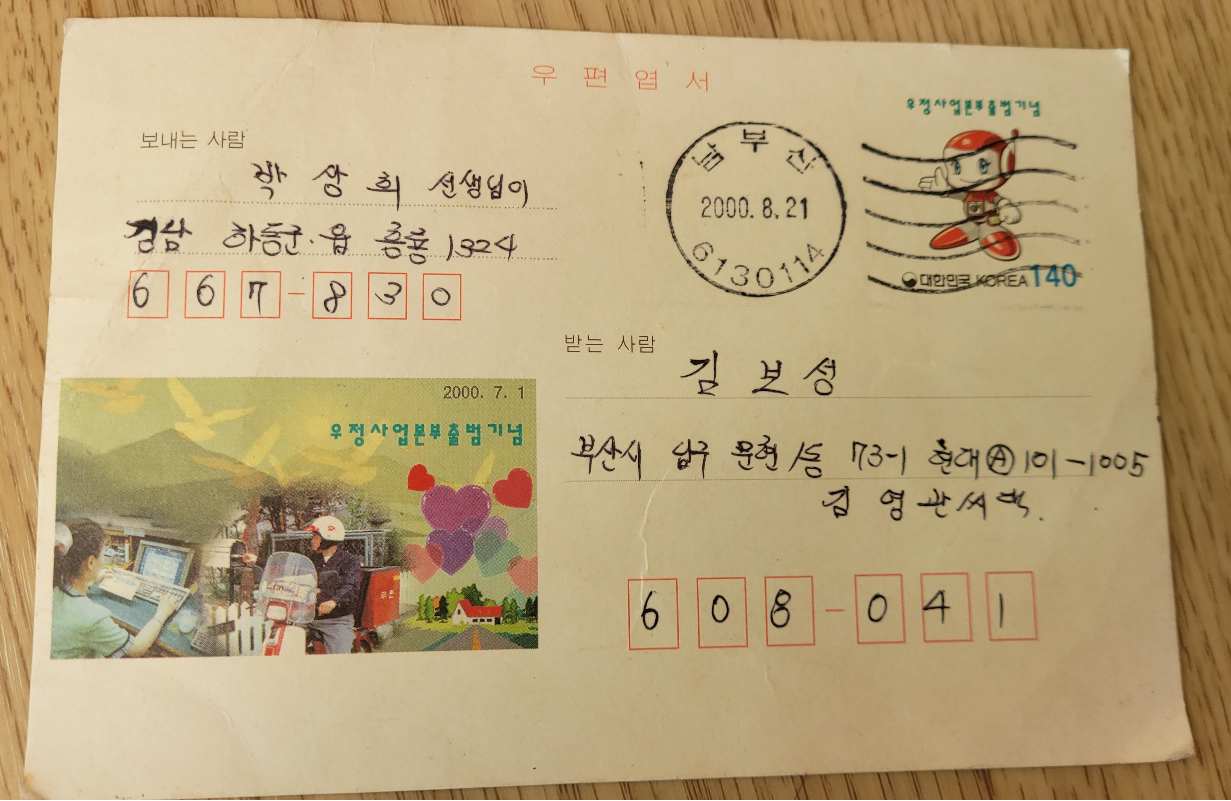 우편엽서
우정사업본부출범기념
보내는 사람
박상희 선생님이
경남 하동군·읍 흥룡 1324
667-830
남부산
2000.8.21
6130114
대한민국 KOREA 140
받는 사람
김보성
부산시 남구 문현1동 73-1 현대Ⓐ101-1005
김영관씨댁.
608-041
2000. 7. 1
우정사업본부출범기념